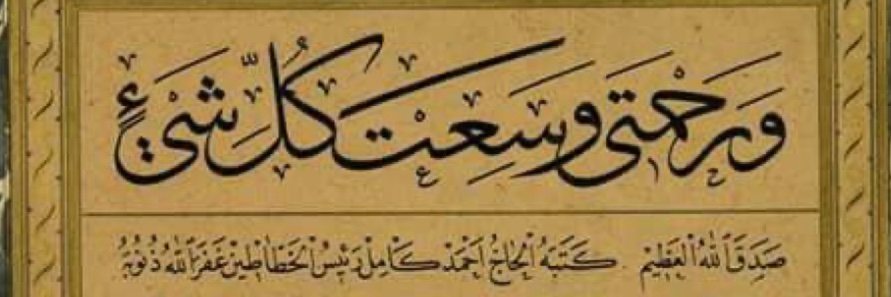 وَرَحْمَتِي وَسِعَتْ كُلَّ شَيْءٍ
صَدَقَ اللهُ الْعَظِيمْ كَتَبَهُ الْحَاجُّ اَحْمَدْ كَامِلْ رَئِيسُ الْخَطَّاطِينْ غَفَرَ اللهُ ذُنُوبَهُ